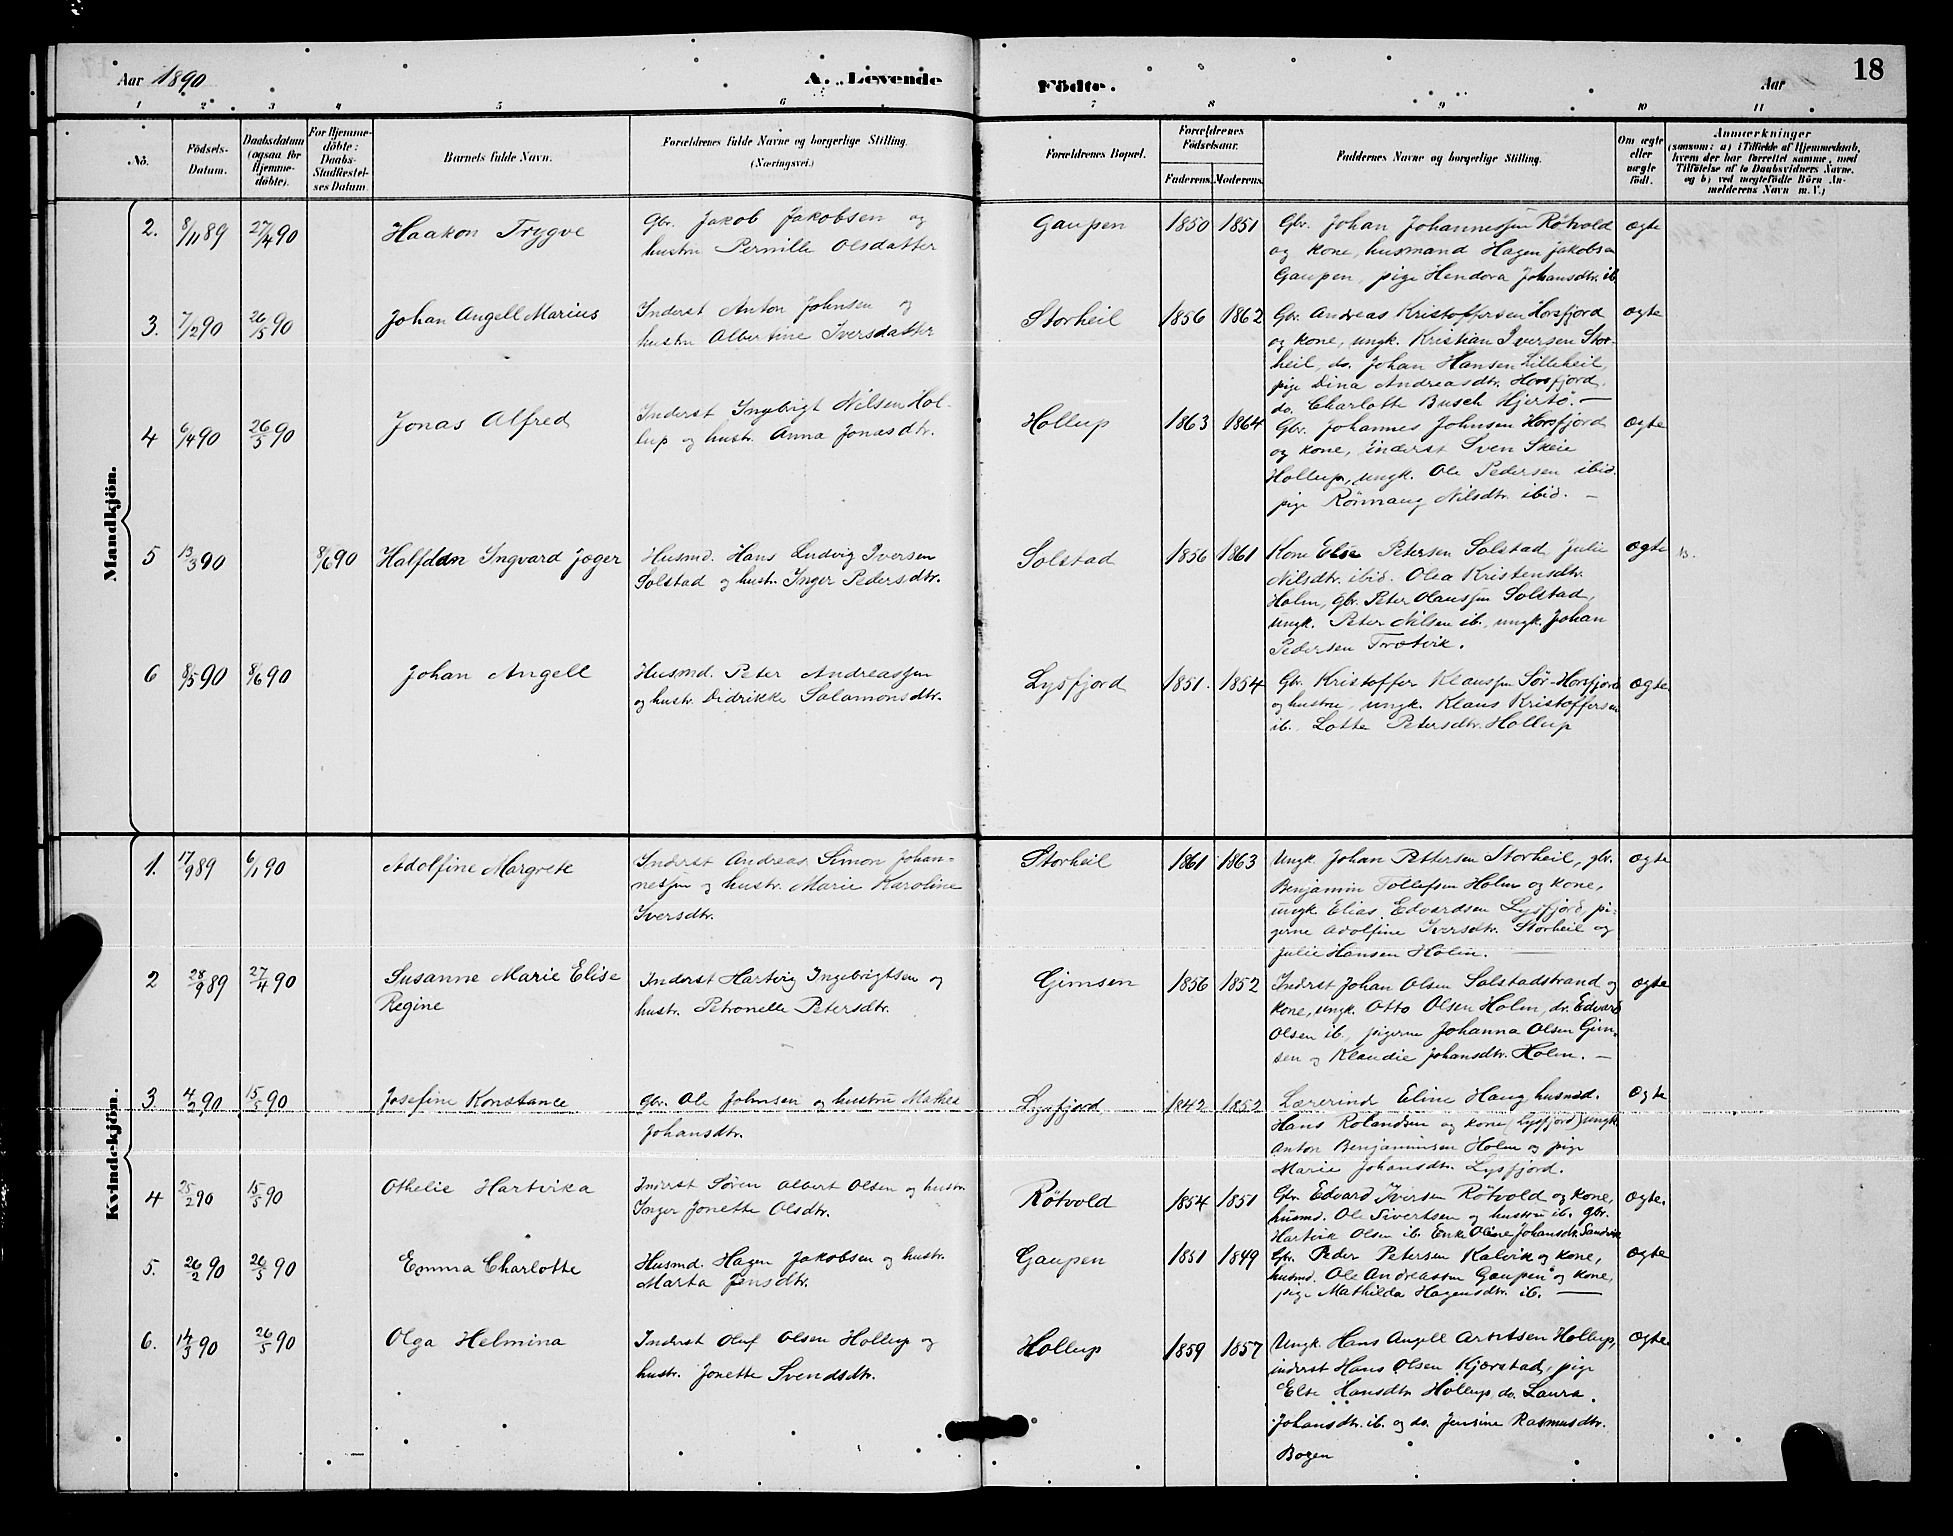 Aar 1890
A. Levende
Födte.
Aar
18
1 2 3 4 5 6 7 8 9 10 11
No.
Födsels-
Datum.
Daabsdatum
(ogsaa for
Hjemme-
döbte).
For Hjemme-
döbte:
Daabs-
Stadfæstel-
ses Datum.
Barnets fulde Navn.
Forældrenes fulde Navne og borgerlige Stilling.
(Næringsvei.)
Forældrenes Bopæl.
Forældrenes
Födselsaar.
Faderens. Moderens.
Faddernes Navne og borgerlige Stilling.
Om ægte
eller
uægte
födt.
Anmærkninger
(saasom: a) i Tilfælde af Hjemmedaab,
hvem der har forrettet samme, med
Tilföielse af to Daabsvidners Navne,
og b) ved uægtefödte Börn An-
melderens Navn m. V.)
Mandkjön.
2. 8/11 89 27/4 90 Haakon Trygve
Gbr. Jakob Jakobsen og
hustru Pernille Olsdatter
Gaupen 1850 1851
Gbr. Johan Johannessen Rötvold
og kone, husmand Hagen Jakobsen
Gaupen, pige Hendora Johansdtr. ib.
ægte
3. 7/2 90 26/5 90 Johan Angell Marius
Inderst Anton Johnsen og
hustru Albertine Iversdatter
Storheil 1856 1862
Gbr. Andreas Kristoffersen Horsfjord
og kone, ungk. Kristian Iversen Stor-
heil, do. Johan Hansen Lilleheil,
pige Dina Andreasdtr. Horsfjord,
do. Charlotte Busch Hjertö. —
ægte
4 6/4 90 26/5 90 Jonas Alfred
Inderst Ingebrigt Nilsen Hol-
lup og hustr. Anna Jonasdtr.
Hollup 1863 1864
Gbr. Johannes Johnsen Horsfjord
og kone, inderst Sven Skeie
Hollup, ungk. Ole Pedersen ibid.
pige Rönnaug Nilsdtr. ibid. —
ægte
5 13/3 90 8/6 90 Halfdan Ingvard Jæger
Husmd. Hans Ludvig Iversen
Solstad og hustr. Inger Pedersdtr.
Solstad 1856 1861
Kone Else Petersen Solstad, Julie
Nilsdtr. ibid. Olea Kristensdtr.
Holm, Gbr. Peter Olaussen Solstad,
ungk. Peter Nilsen ib., ungk. Johan
Pedersen Trætvik.
ægte
6 8/5 90 8/6 90 Johan Angell
Husmd. Peter Andreassen
og hustr. Didrikke Salamonsdtr.
Lysfjord 1851. 1854
Gbr. Kristoffer Klaussen Sör-Horsfjord
og hustru, ungk. Klaus Kristoffersen
ib. Lotte Petersdtr. Hollup
ægte
Kvindekjön.
1. 17/9 89 6/1 90 Adolfine Margrete
Inderst Andreas Simon Johan-
nessen og hustr. Marie Karoline
Iversdtr.
Storheil 1861 1863
Ungk. Johan Pettersen Storheil, gbr.
Benjamin Tollefsen Holm og kone,
ungk. Elias Edvardsen Lysfjord, pi-
gerne Adolfine Iversdtr. Storheil og
Julie Hansen Holm. —
ægte
2 28/9 89 27/4 90 Susanne Marie Elise
Regine
Inderst Hartvig Ingebrigtsen og
hustr. Petronelle Petersdtr.
Gimsen 1856 1852
Inderst Johan Olsen Solstadstrand og
kone, ungk. Otto Olsen Holm, do. Edvard
Olsen ib., pigerne Johanna Olsen Gim-
sen og Klaudie Johansdtr. Holm. —
ægte
3 4/2 90 15/5 90 Josefine Konstance
Gbr. Ole Johnsen og hustru Mathea
Johansdtr.
Lysfjord 1842 1852
Lærerind Eline Haug, husmd.
Hans Rolandsen og kone (Lysfjord) ungk.
Anton Benjaminsen Holm og pige
Marie Johansdtr. Lysfjord.
ægte
4 25/2 90 15/5 90 Othelie Hartvika
Inderst Sören Albert Olsen og hustru
Inger Jonette Olsdtr.
Rötvold 1854 1851
Gbr. Edvard Iversen Rötvold og kone,
husmd. Ole Sivertsen og hustru ib. gbr.
Hartvik Olsen ib. Enke Oline Johansdtr. Sandvik
ægte.
5. 26/2 90 26/5 90 Emma Charlotte
Husmd. Hagen Jakobsen og hustr.
Marta Jensdtr.
Gaupen 1851 1849
Gbr. Peder Petersen Kalvik og kone,
husmd. Ole Andreassen Gaupen og kone,
pige Mathilda Hagensdtr. ib. —
ægte
6. 14/3 90 26/5 90 Olga Helmina
Inderst Oluf Olsen Hollup og
hustr. Jonette Svendsdtr.
Hollup 1859 1857
Ungk. Hans Angell Arntsen Hollup,
inderst Hans Olsen Kjærstad, pige
Else Hansdtr. Hollup, do. Laura
Johansdtr. ib. og do. Jensine Rasmusdtr.
Bogen
ægte